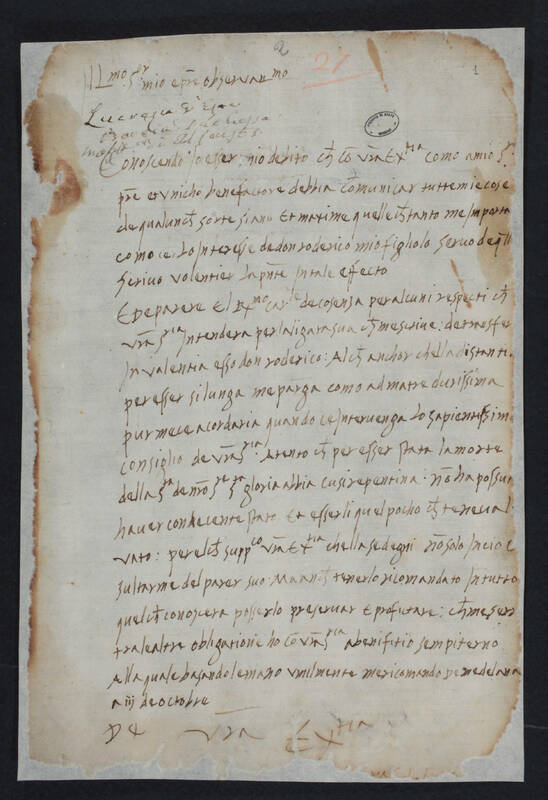 a
21
1
Ill.mo Sr mio e pre observan.mo
Lucrezia d'Este
Conoscendo io esser mio debito ch cō vrā Ex.tia como a mio Sr
pre et unicho benefactore debbia comunicar tutte mie cose
de qualunch sorte siano Et maxime quelle ch tanto me importa
como e lo interesse de don roderico mio figliolo servo de q.lla
scrivo volentier la pnte in tale effecto
E de parere El R.mo Car.le de cosensa per alcuni respecti ch
vrā S.ria intendera per la ligata sua ch me scrive: de trasfer
in valentia esso don roderico: Al ch anchor che la distantia
per esser si lunga me parga como ad matre durissima
pur me ce acordaria quando ce intervenga lo sapientissimo
consiglio de vrā S.ria: Atento ch per esser stata la morte
della S.ta de nro Sre gloria abbia cusi repentina: nō ha possuto
haver condecente stato Et esserli quel pocho ch teneva l
vato: per el ch supp.co vrā Ex.tia che la se degni nō solo in cio
sultarme del parer suo Ma anch tenerlo ricomandato in tutto
quel ch conoscera posserlo preservar E profictare: ch me sera
tra le altre obligatione ho cō vrā S.ria a benifitio sempiterno
Alla quale basando le mano umilmente me ricomando
a iii de octobre
De vrā Ex.tia